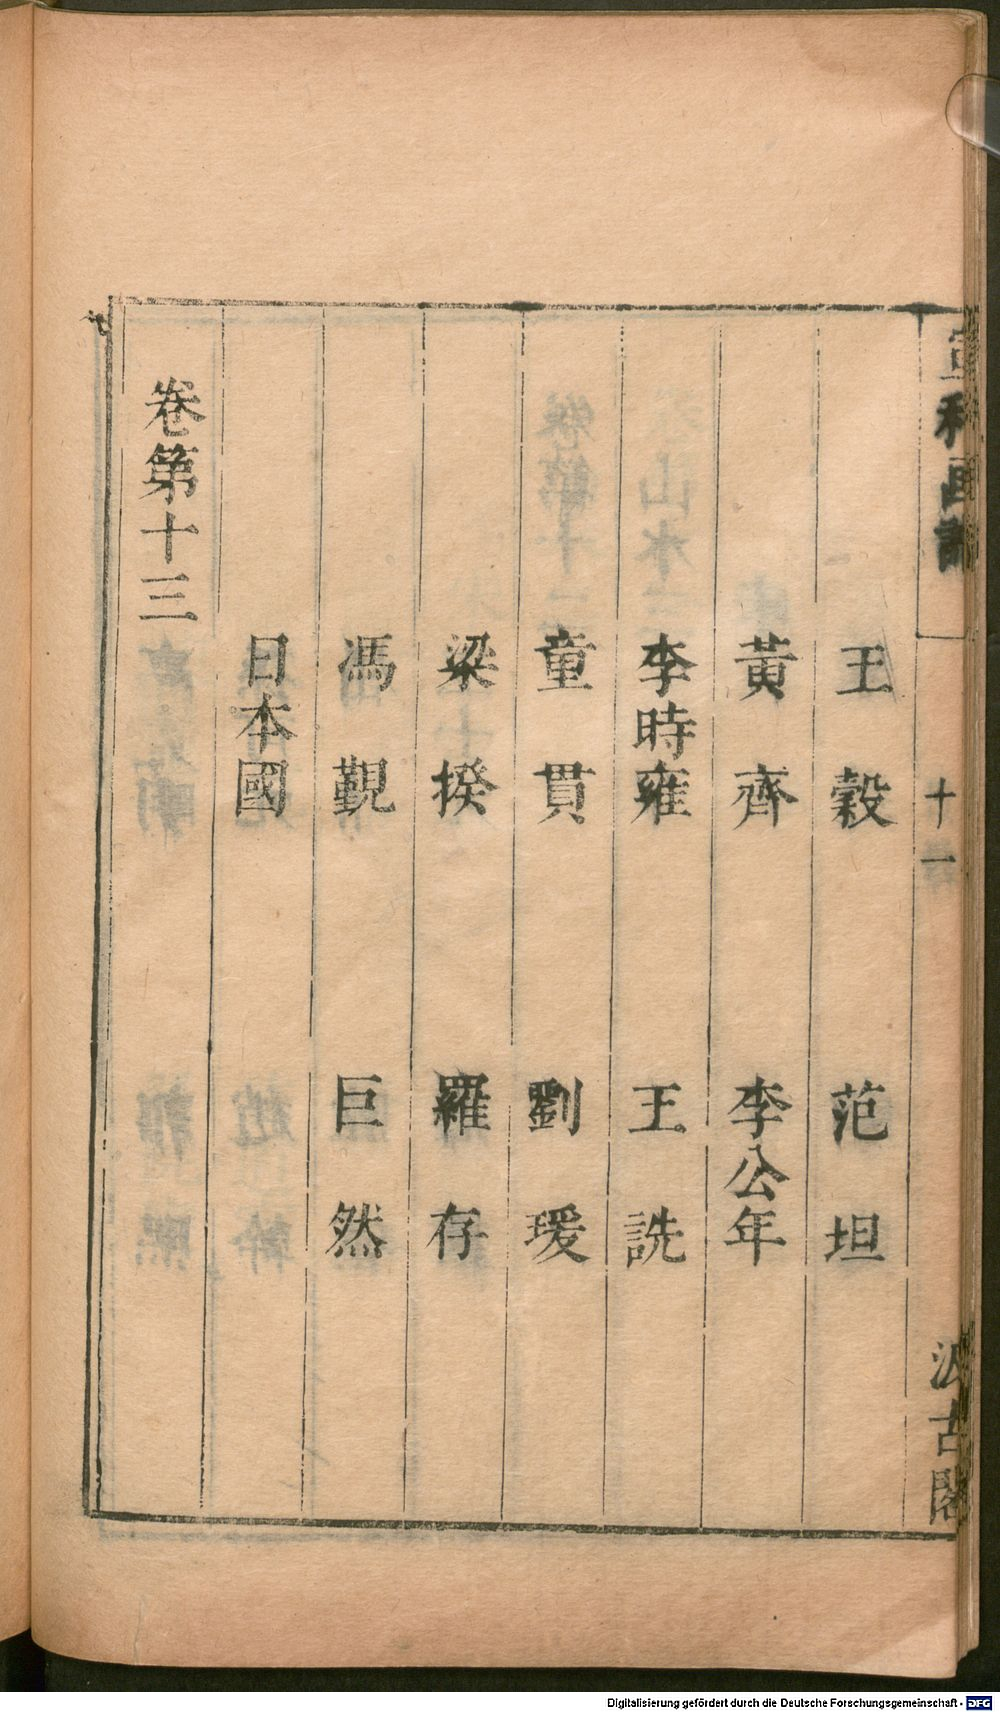 宣和画譜
十一
汲古閣
王穀 范坦
黃齊 李公年
李時雍 王詵
童貫 劉瑗
梁揆 羅存
馮覲 巨然
日本國
卷第十三
Digitalisierung gefördert durch die Deutsche Forschungsgemeinschaft - DFG